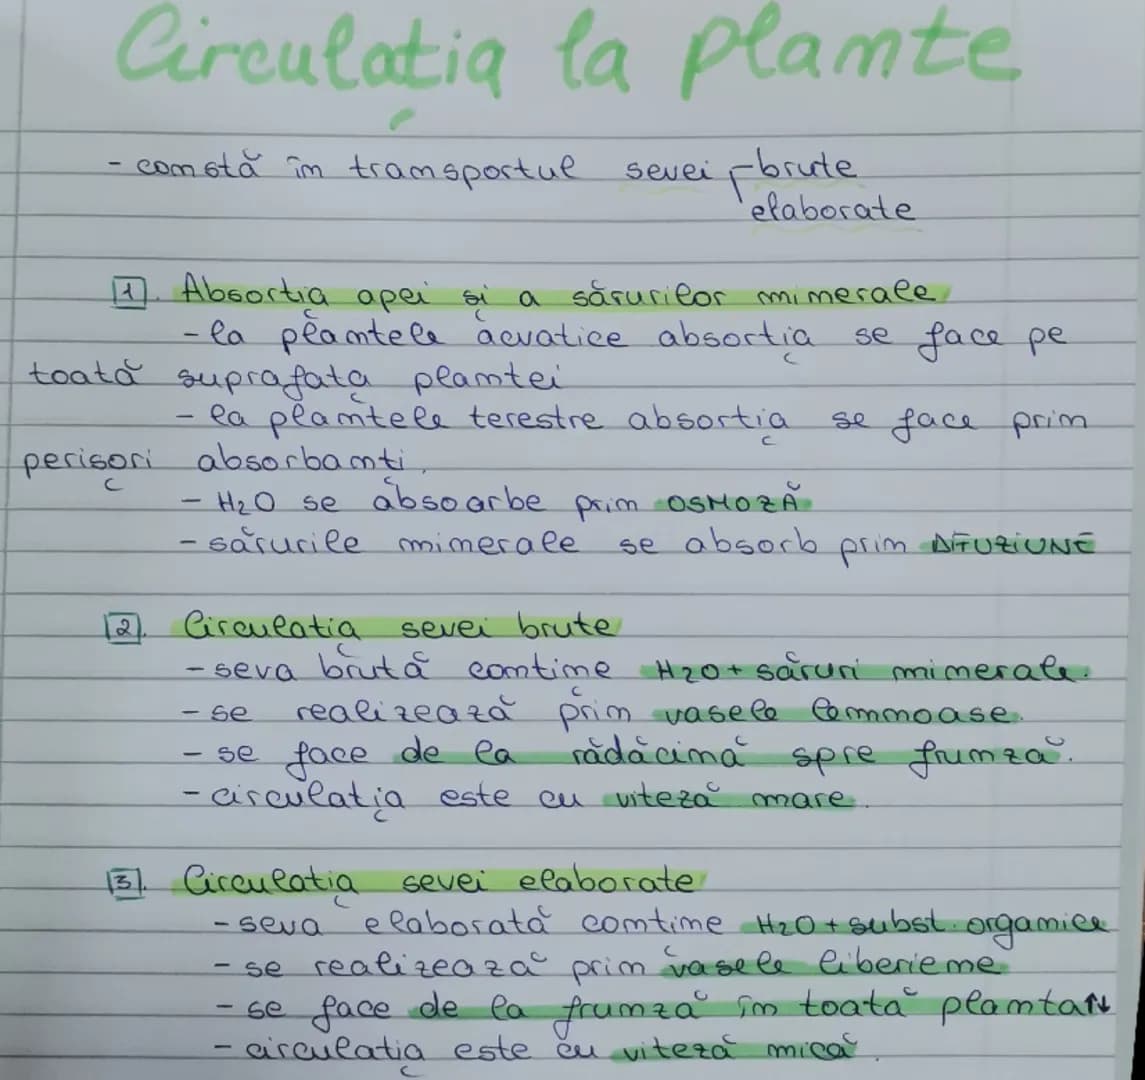 Circulația la plante
- constă în transportul sevei brute
elaborate
1. Absorția apei și a sărurilor minerale
- la plantele acvatice absorția se face pe
toată suprafața plantei
- la plantele terestre absorția se face prin
perișori absorbanți.
- H2O se absoarbe prin OSMOZĂ
- sărurile minerale se absorb prin DIFUZIUNE
2. Circulația sevei brute
- seva brută conține H2O + săruri minerale.
- se realizează prin vasele lemnoase.
- se face de la rădăcină spre frunză.
- circulația este cu viteză mare.
3. Circulația sevei elaborate
- seva elaborată conține H2O + subst. organice
- se realizează prin vasele liberiene
- se face de la frunză în toată planta ↑↓
- circulația este cu viteză mică.